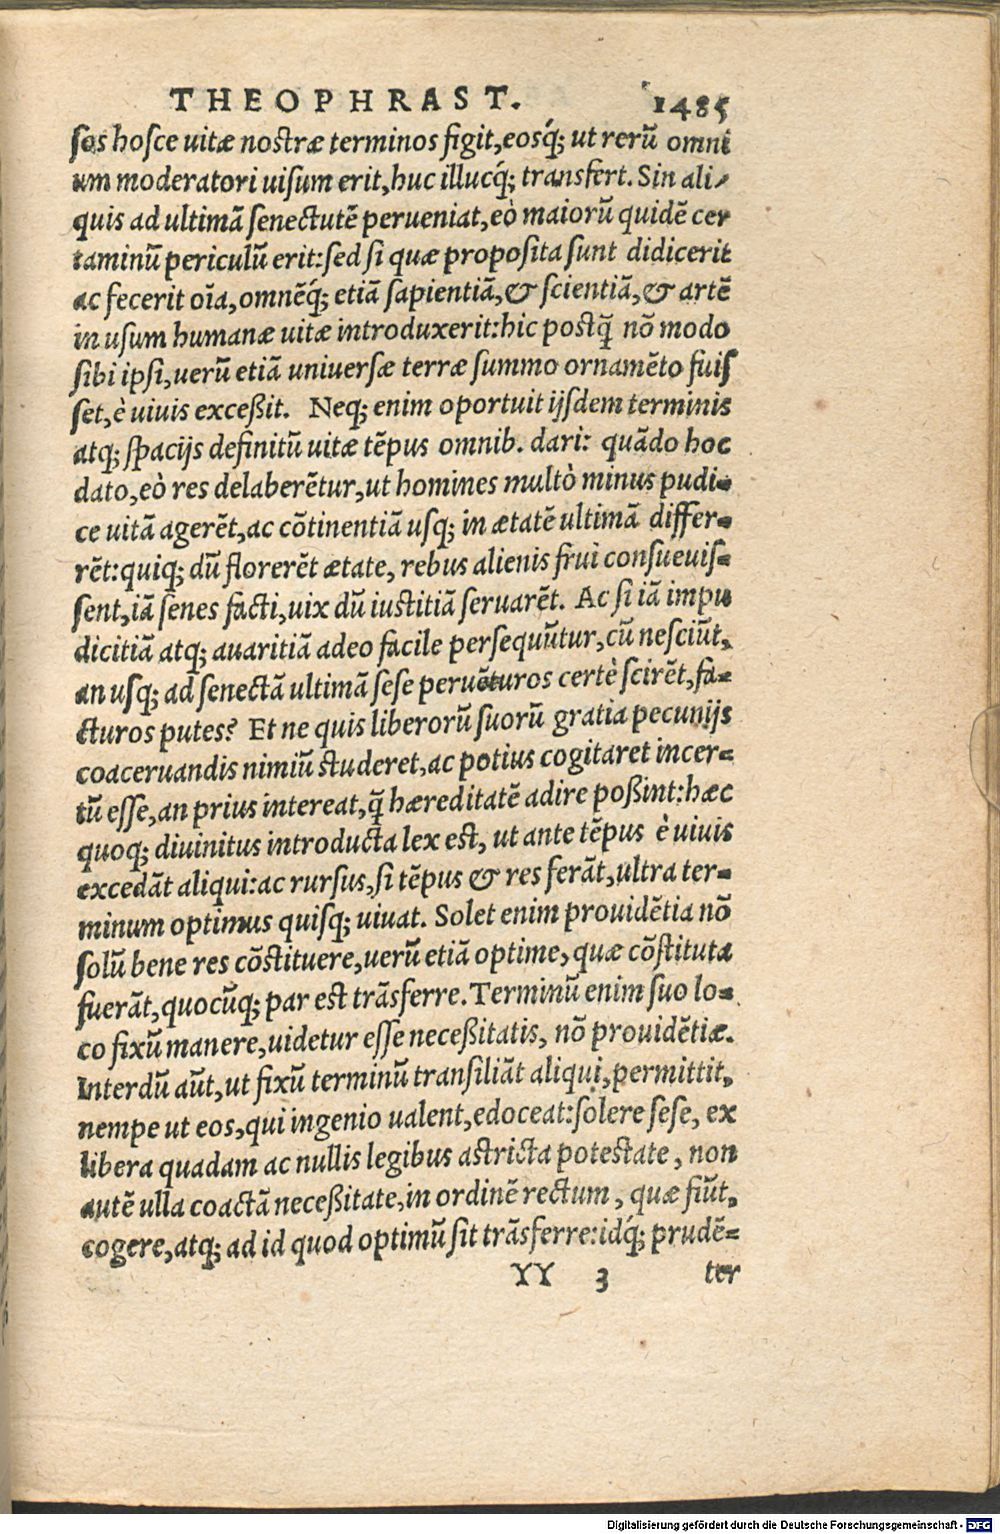 THEOPHRAST. 1485
sos hosce uitæ nostræ terminos figit, eosq́; ut rerũ omni
um moderatori uisum erit, huc illucq́; transfert. Sin ali-
quis ad ultimã senectutẽ perueniat, eò maiorũ quidẽ cer
taminũ periculũ erit: sed si quæ proposita sunt didicerit
ac fecerit oĩa, omnẽq́; etiã sapientiã, & scientiã, & artẽ
in usum humanæ uitæ introduxerit: hic postq̃ nõ modo
sibi ipsi, uerũ etiã uniuersæ terræ summo ornamẽto fuis
set, è uiuis exceßit. Neq; enim oportuit ijsdem terminis
atq; spacijs definitũ uitæ tẽpus omnib. dari: quãdo hoc
dato, eò res delaberẽtur, ut homines multò minus pudi-
ce uitã agerẽt, ac cõtinentiã usq; in ætatẽ ultimã differ-
rẽt: quiq; dũ florerẽt ætate, rebus alienis frui consueuis-
sent, iã senes facti, uix dũ iustitiã seruarẽt. Ac si iã impu
dicitiã atq; auaritiã adeo facile persequũtur, cũ nesciũt,
an usq; ad senectã ultimã sese peruẽturos certè scirẽt, fa-
cturos putes? Et ne quis liberorũ suorũ gratia pecunijs
coaceruandis nimiũ studeret, ac potius cogitaret incer-
tũ esse, an prius intereat, q̃ hæreditatẽ adire poßint: hæc
quoq; diuinitus introducta lex est, ut ante tẽpus è uiuis
excedãt aliqui: ac rursus, si tẽpus & res ferãt, ultra ter-
minum optimus quisq; uiuat. Solet enim prouidẽtia nõ
solũ bene res cõstituere, uerũ etiã optime, quæ cõstituta
fuerãt, quocũq; par est trãsferre. Terminũ enim suo lo-
co fixũ manere, uidetur esse neceßitatis, nõ prouidẽtiæ.
Interdũ aũt, ut fixũ terminũ transiliãt aliqui, permittit,
nempe ut eos, qui ingenio ualent, edoceat: solere sese, ex
libera quadam ac nullis legibus astricta potestate, non
autẽ ulla coactã neceßitate, in ordinẽ rectum, quæ fiũt,
cogere, atq; ad id quod optimũ sit trãsferre: idq́; prudẽ-
YY 3 ter
Digitalisierung gefördert durch die Deutsche Forschungsgemeinschaft - DFG